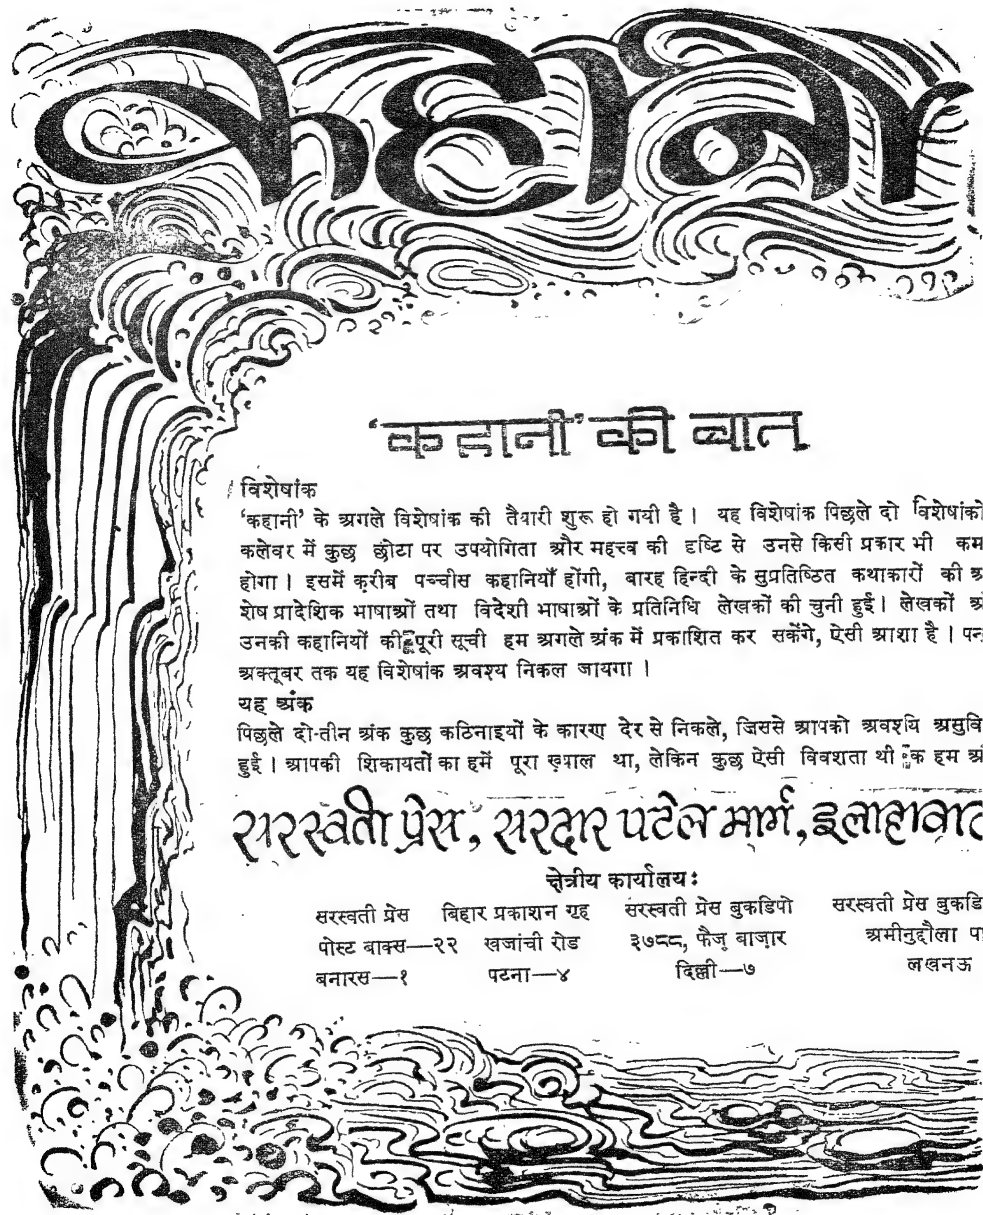 कहानी
‘कहानी’ की बात
विशेषांक
‘कहानी’ के अगले विशेषांक की तैयारी शुरू हो गयी है। यह विशेषांक पिछले दो विशेषांको
कलेवर में कुछ छोटा पर उपयोगिता और महत्त्व की दृष्टि से उनसे किसी प्रकार भी कम
होगा। इसमें क़रीब पच्चीस कहानियाँ होंगी, बारह हिन्दी के सुप्रतिष्ठित कथाकारों की
शेष प्रादेशिक भाषाओं तथा विदेशी भाषाओं के प्रतिनिधि लेखकों की चुनी हुई। लेखकों
उनकी कहानियों की पूरी सूची हम अगले अंक में प्रकाशित कर सकेंगे, ऐसी आशा है।
अक्तूबर तक यह विशेषांक अवश्य निकल जायगा।
यह अंक
पिछले दो-तीन अंक कुछ कठिनाइयों के कारण देर से निकले, जिससे आपको
हुई। आपकी शिकायतों का हमें पूरा ख़याल था, लेकिन कुछ ऐसी विवशता थी हम
सरस्वती प्रेस, सरदार पटेल मार्ग,
क्षेत्रीय कार्यालय:
सरस्वती प्रेस बिहार प्रकाशन गृह सरस्वती प्रेस बुकडिपो सरस्वती प्रेस
पोस्ट बाक्स—२२ खजांची रोड ३७८८, फैज़ बाज़ार अमीनुद्दौला
बनारस—१ पटना—४ दिल्ली—७ लखनऊ